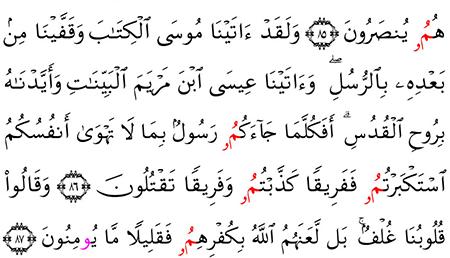 هُمُۥ يُنصَرُونَ ۝٨٥ وَلَقَدْ ءَاتَيْنَا مُوسَى اَ۬لْكِتَٰبَ وَقَفَّيْنَا مِنۢ
بَعْدِهِۦ بِالرُّسُلِۖ وَءَاتَيْنَا عِيسَى اَ۪بْنَ مَرْيَمَ اَ۬لْبَيِّنَٰتِ وَأَيَّدْنَٰهُ
بِرُوحِ اِ۬لْقُدُسِۗ أَفَكُلَّمَا جَآءَكُمُۥ رَسُولُۢ بِمَا لَا تَهْوَىٰٓ أَنفُسُكُمُ
اُ۪سْتَكْبَرْتُمُۥ فَفَرِيقًا كَذَّبْتُمُۥ وَفَرِيقًا تَقْتُلُونَ ۝٨٦ وَقَالُواْ
قُلُوبُنَا غُلْفُۢۚ بَل لَّعَنَهُمُ اُ۬للَّهُ بِكُفْرِهِمُۥ فَقَلِيلًا مَّا يُومِنُونَ ۝٨٧